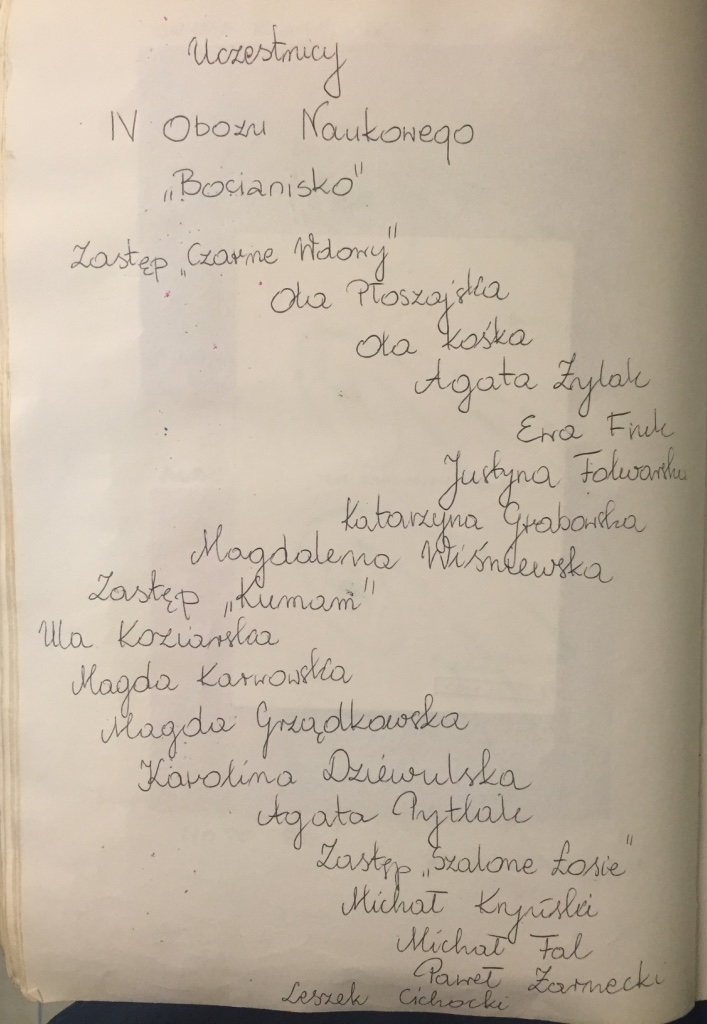 Uczestnicy
IV Obozu Naukowego
„Bocianisko"
Zastęp „Czarne Wdowy"
Ola Płoszajska
Ola Łośka
Agata Żylak
Ewa
Justyna
Katarzyna Grabowska
Magdalena Wiśniewska
Zastęp „Kumam"
Ula Koziarska
Magda Karwowska
Magda Grządkowska
Karolina Dziewulska
Agata Pytlak
Zastęp „Szalone Łosie"
Michał Krypiński
Michał Fal
Paweł Żarnecki
Leszek Cichocki